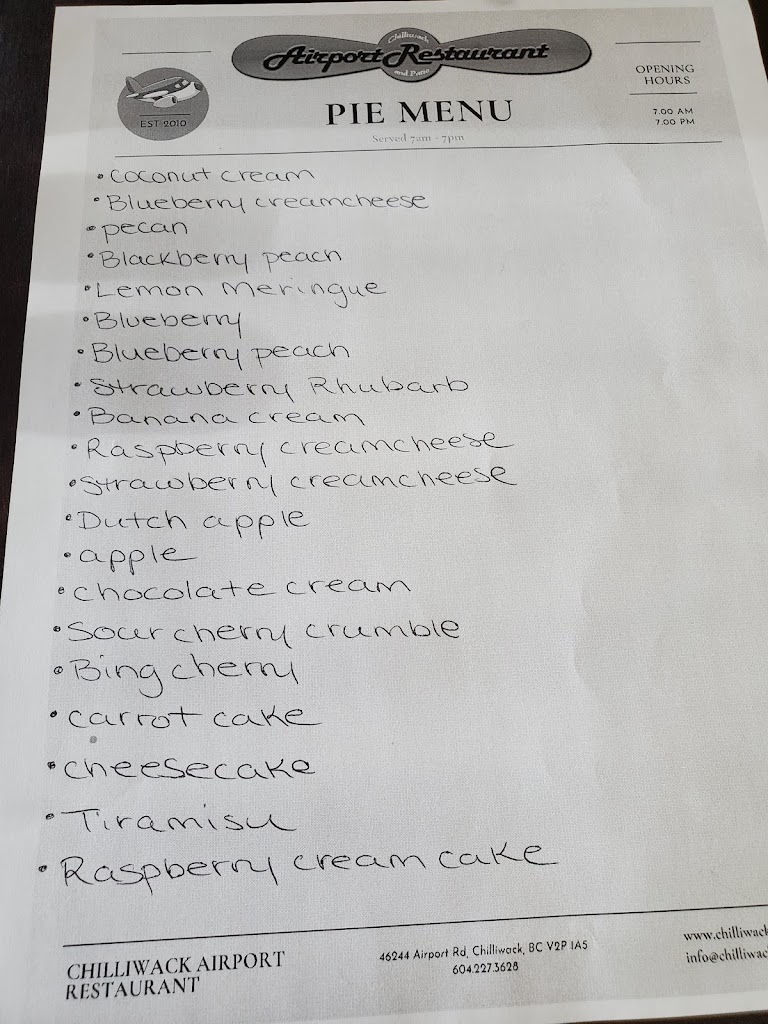 Chilliwack
Airport Restaurant
and Patio
EST 2010
PIE MENU
Served 7am - 7pm
OPENING
HOURS
7.00 AM
7.00 PM
• Coconut cream
• Blueberry creamcheese
• pecan
• Blackberry peach
• Lemon Meringue
• Blueberry
• Blueberry peach
• Strawberry Rhubarb
• Banana cream
• Raspberry creamcheese
• Strawberry creamcheese
• Dutch apple
• apple
• chocolate cream
• Sour cherry crumble
• Bing cherry
• carrot cake
• cheesecake
• Tiramisu
• Raspberry cream cake
CHILLIWACK AIRPORT
RESTAURANT
46244 Airport Rd, Chilliwack, BC V2P 1A5
604.227.3628
www.chilliwack
info@chilliwac